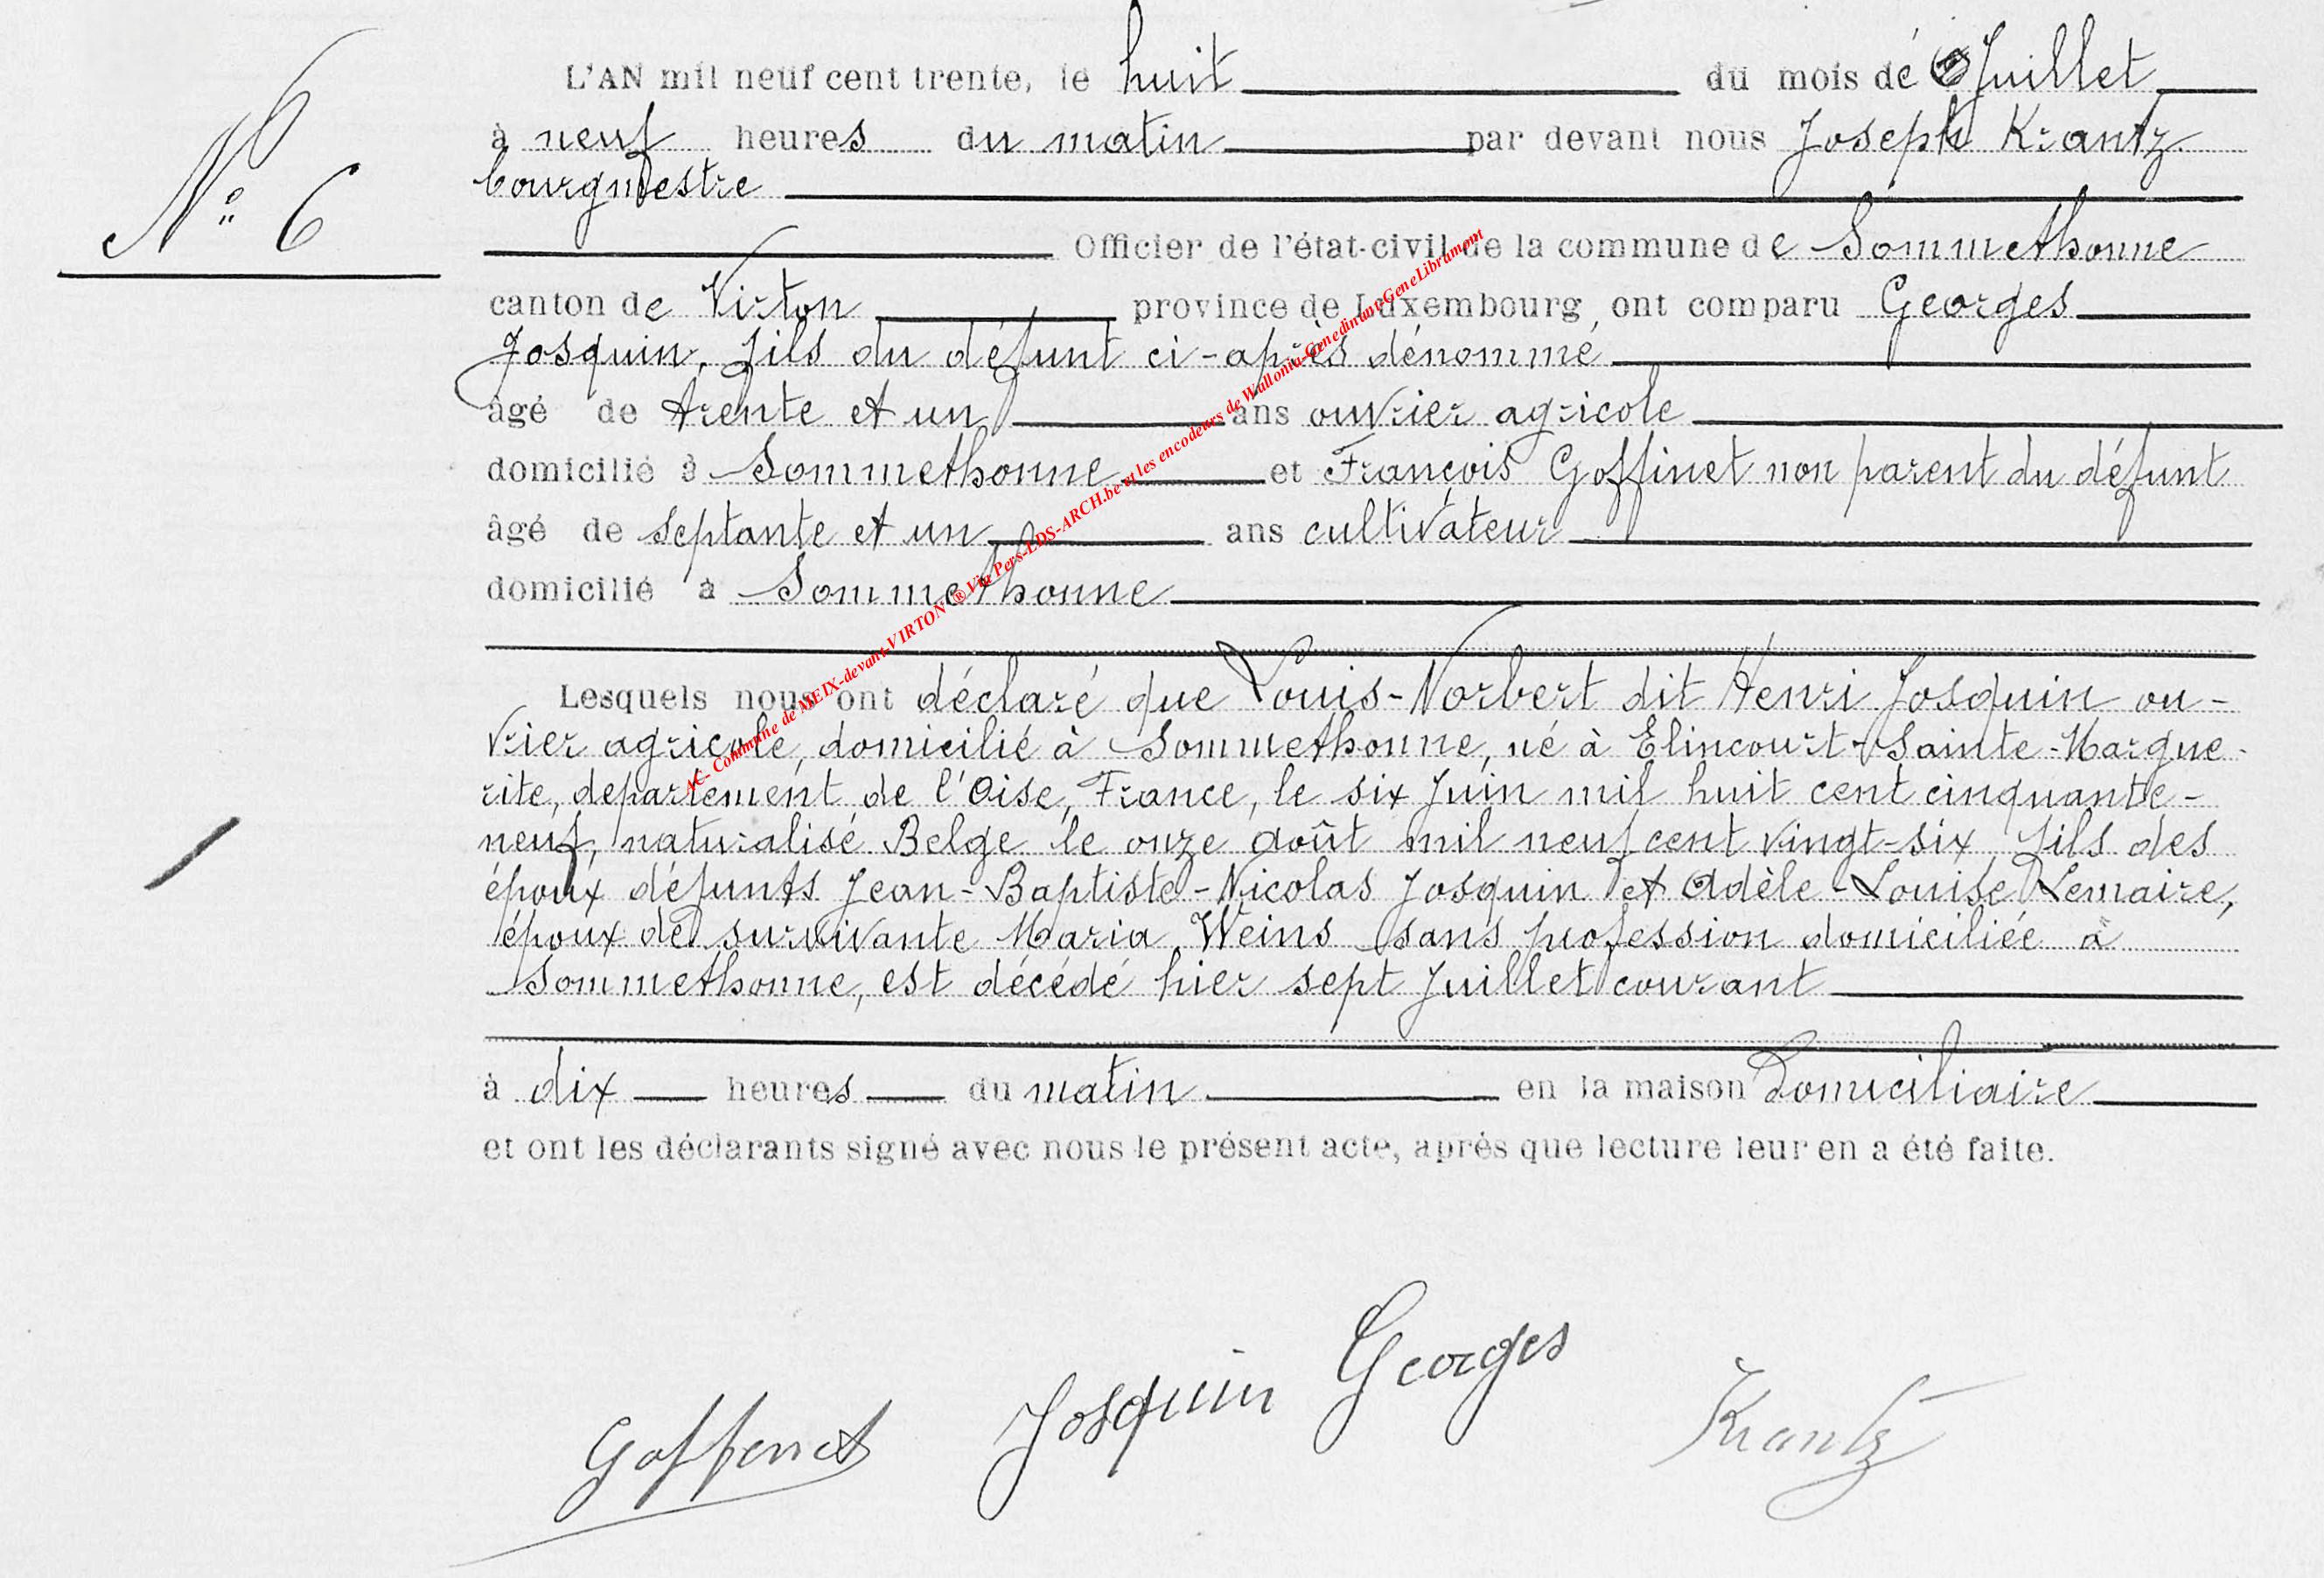 N° 6
L'AN mil neuf cent trente, le huit du mois de Juillet
à neuf heures du matin par devant nous Joseph Krantz
bourgmestre
Officier de l'état-civil de la commune de Sommethonne
canton de Virton province de Luxembourg ont comparu Georges
Josquin, fils du défunt ci-après dénommé
âgé de trente et un ans ouvrier agricole
domicilié à Sommethonne et François Goffinet non parent du défunt
âgé de septante et un ans cultivateur
domicilié à Sommethonne
Lesquels nous ont déclaré que Louis-Norbert dit Henri Josquin ou-
vrier agricole, domicilié à Sommethonne, né à Elincourt-Sainte-Margue-
rite, departement de l'Oise, France, le six Juin mil huit cent cinquante-
neuf, naturalisé Belge le onze août mil neuf cent vingt-six, fils des
époux défunts Jean-Baptiste-Nicolas Josquin et Adèle-Louise Lemaire,
époux de survivante Maria Weins sans profession domiciliée à
Sommethonne, est décédé hier sept Juillet courant
à dix heures du matin en la maison domiciliaire
et ont les déclarants signé avec nous le présent acte, après que lecture leur en a été faite.
Goffinet Josquin Georges Krantz
AC- Commune de MEIX-devant-VIRTON ® Via Pers-LDS-ARCH.be et les encodeurs de Wallonia-Genedinant-GeneLibramont